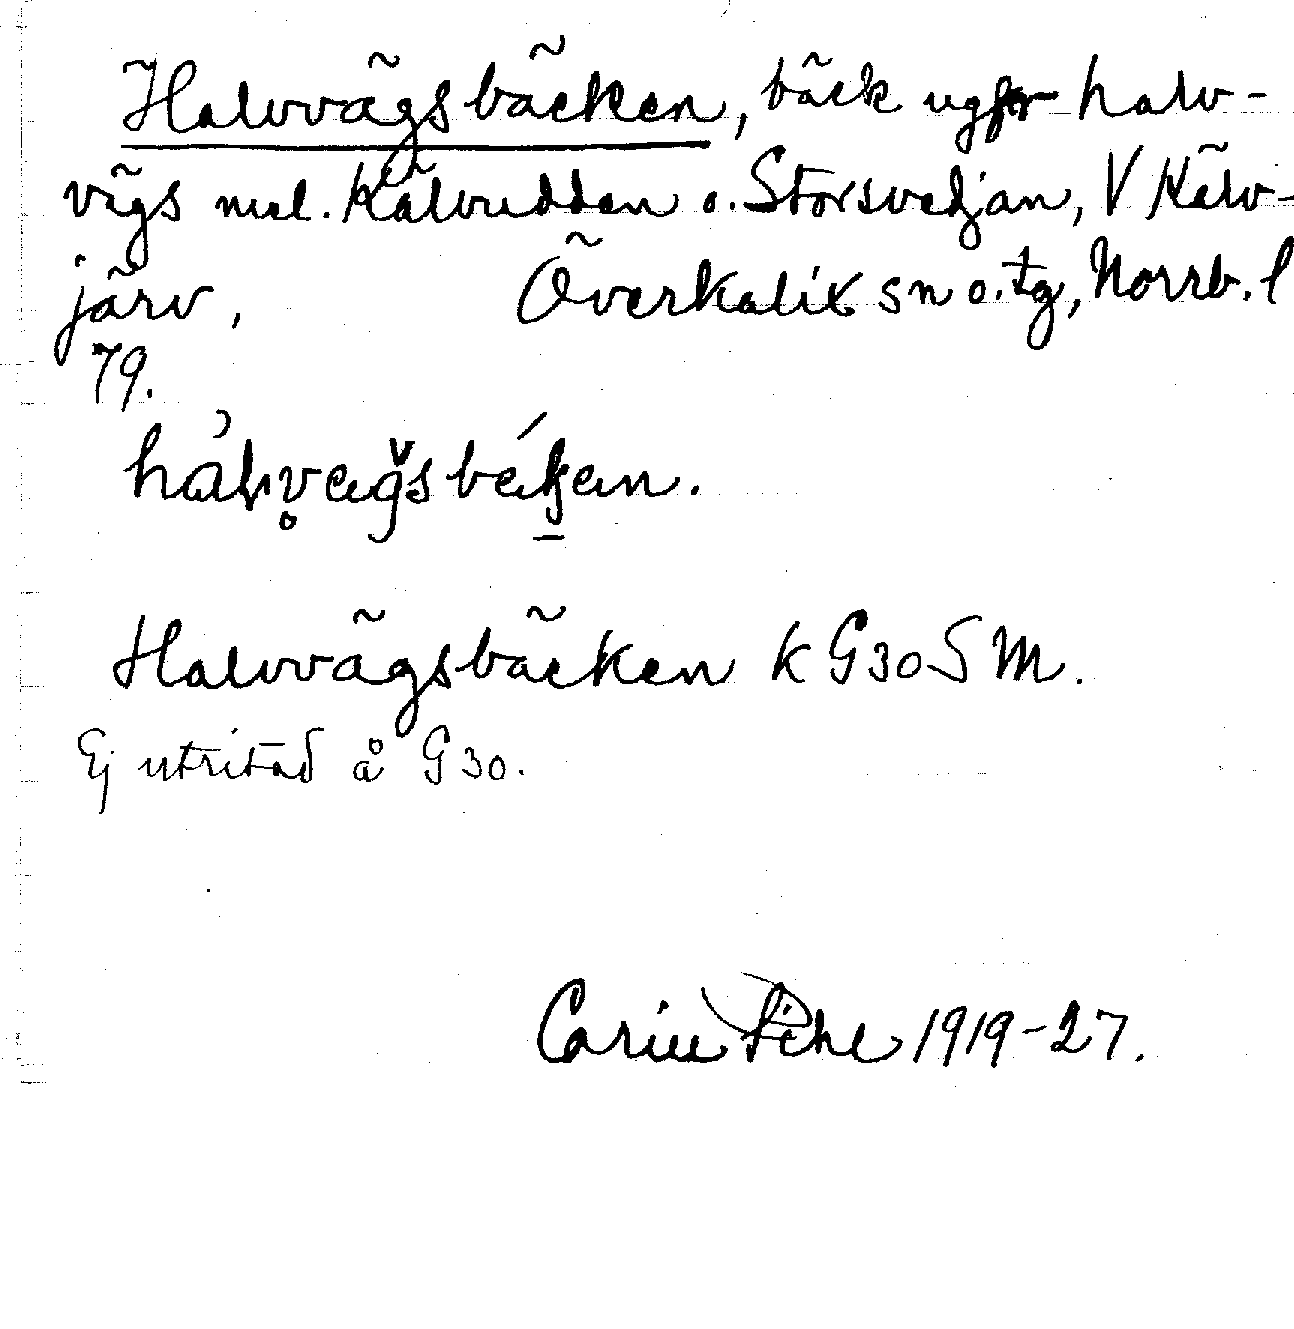 Halvvägsbäcken, bäck ugfr halv-
vägs mel. Kälvudden o. Storsvedjan, V Kälv-
järv, Överkalix sn o. tg, Norrb. l
79.
Halvvägsbäcken k G30SM.
Ej utritad å G30.
Carin Pihl 1919-27.